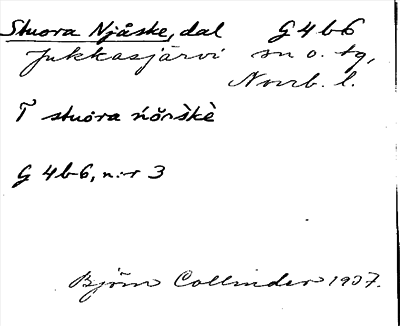 Stuora Njåske, dal G 4 b 6
Jukkasjärvi sn o. tg,
Norrb. l.
T stuòra
G 4 b 6, n:r 3
Björn Collinder 1937.